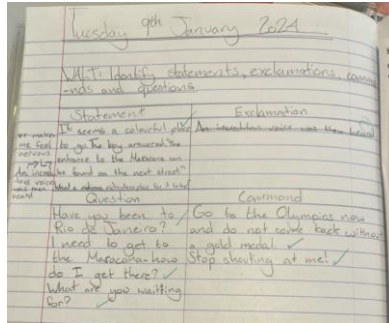 Tuesday 9th January 2024
WALT: Identify statements, exclamations, comma
-nds and questions.
Statement
It seems a colourful place
to go. The boy answered, "the
entrance to the Maracana can
be found on the next street"
What a
for it to be
Exclamation
An incredulous voice was then heard
makes
me feel
nervous
An incre
voice
was then
heard
Question
Have you been to
Rio de Janeiro?
I need to get to
the Maracana-how
do I get there?
What are you waitting
for?
Command
Go to the Olympics now
and do not come back without
a gold medal.
Stop shouting at me!